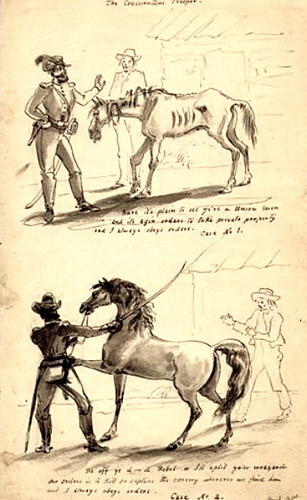 The Conscientious Trooper.
Sure it's plain to see ye're a Union man
and its agin orders to take private property
and I always obeys orders.
Case No 1.
Be off ye d—d Rebel or I'll split your
our orders is to kill or capture the enemy wherever we find him
and I always obeys orders.
Case No. 2.